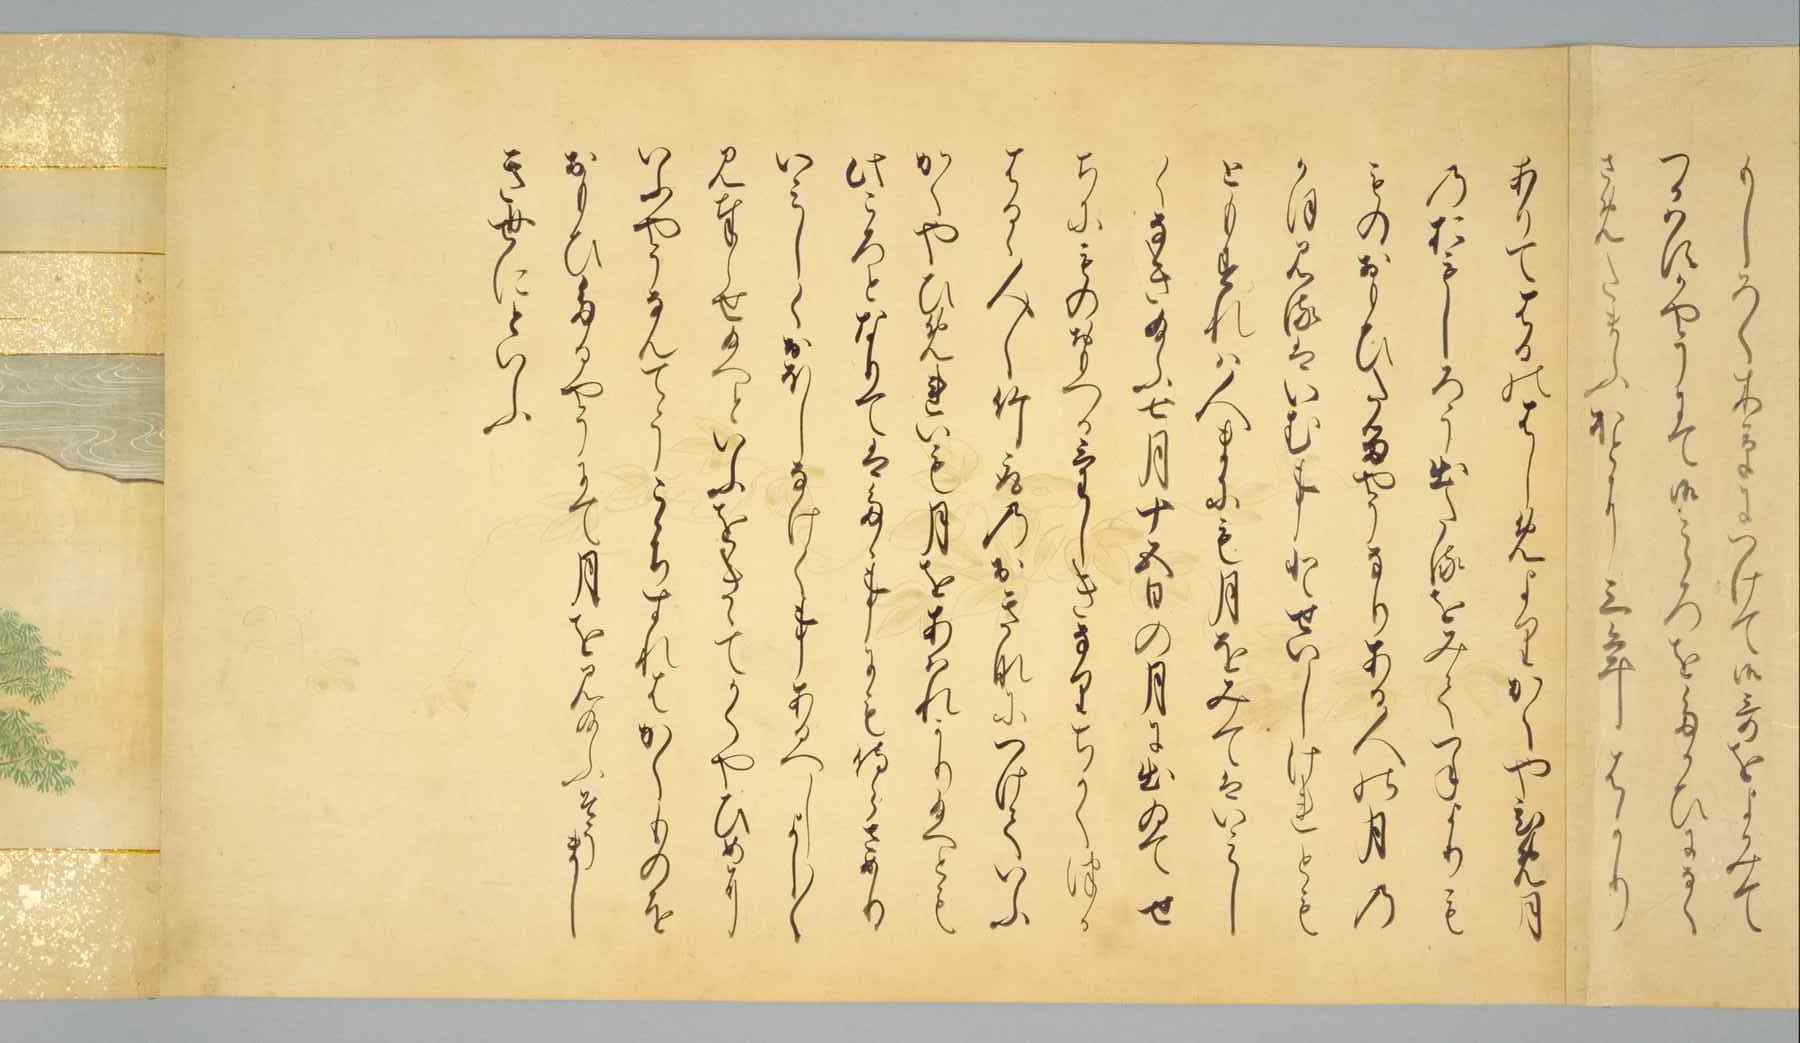 もしろく木草につけて御哥をよみて
つかはすかやうにて御こゝろをたかひになく
さめたまふほとに三年はかり
ありてはるのはしめよりかくや姫月
のおもしろう出たるをみてつねよりも
ものおもひたるやうなりある人の月の
かほ見るはいむ事とせいしけれとも
ともすれは人まにも月をみてはいみし
くなき給ふ七月十五日の月に出ゐてせ
ちにものおもへるけしきなりちかくつか
はるゝ人〱竹取のおきなにつけていふ
かくやひめれいも月をあはれかり給へとも
此ころとなりてはたゝ事にも侍らさめり
いみしくおほしなけく事あるへしよく〱
見奉らせ給へといふをきゝてかくやひめに
いふやうなんてうこゝちすれはかくものを
おもひたるやうにて月を見給ふそうまし
き世にといふ